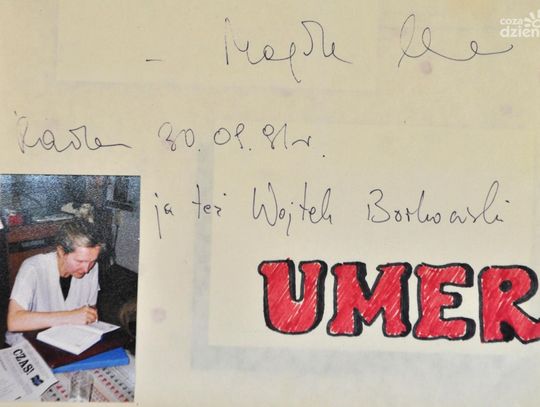 coza
dzień
- Magda Umer
Radom 30.09.91r.
ja też Wojtek Borkowski
UMER
CZAS!